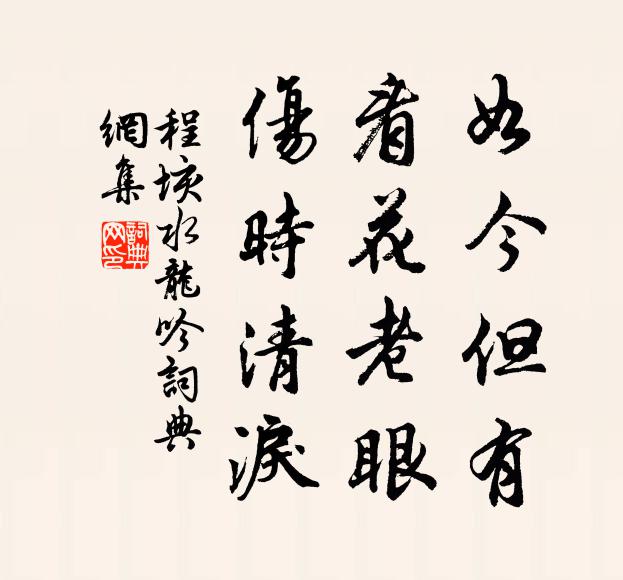 如今但有
看花老眼
傷時清淚
程垓水龍吟詞典
網集
詞典網印